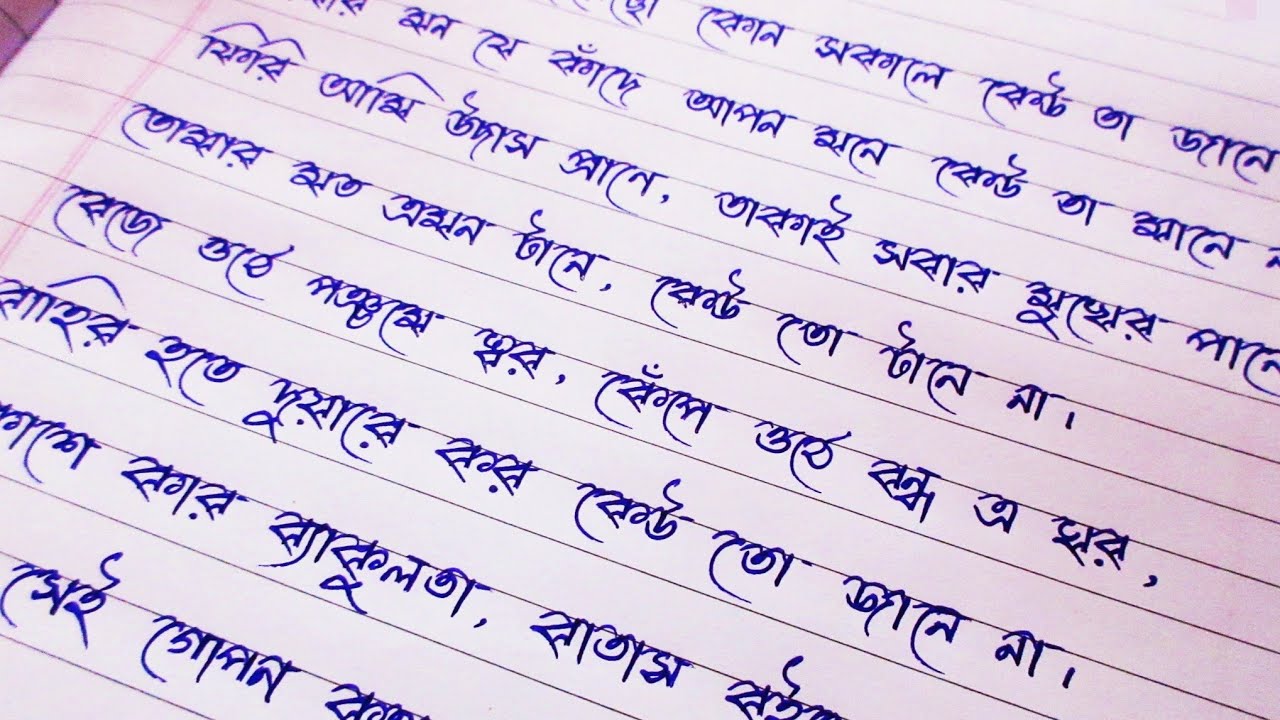 কোন সকালে কেউ তা জানে
মন যে কাঁদে আপন মনে কেউ তা মানে
ফিরি আমি উদাস প্রানে, তাকাই সবার মুখের পানে
তোমার মত এমন টানে, কেউ তো টানে না।
বেজে ওঠে পঞ্চমে স্বর, কেঁপে ওঠে বন্ধ এ ঘর,
বাহির হতে দুয়ারে কর কেউ তো জানে না।
কার ব্যাকুলতা, বাতাস
সেই গোপন